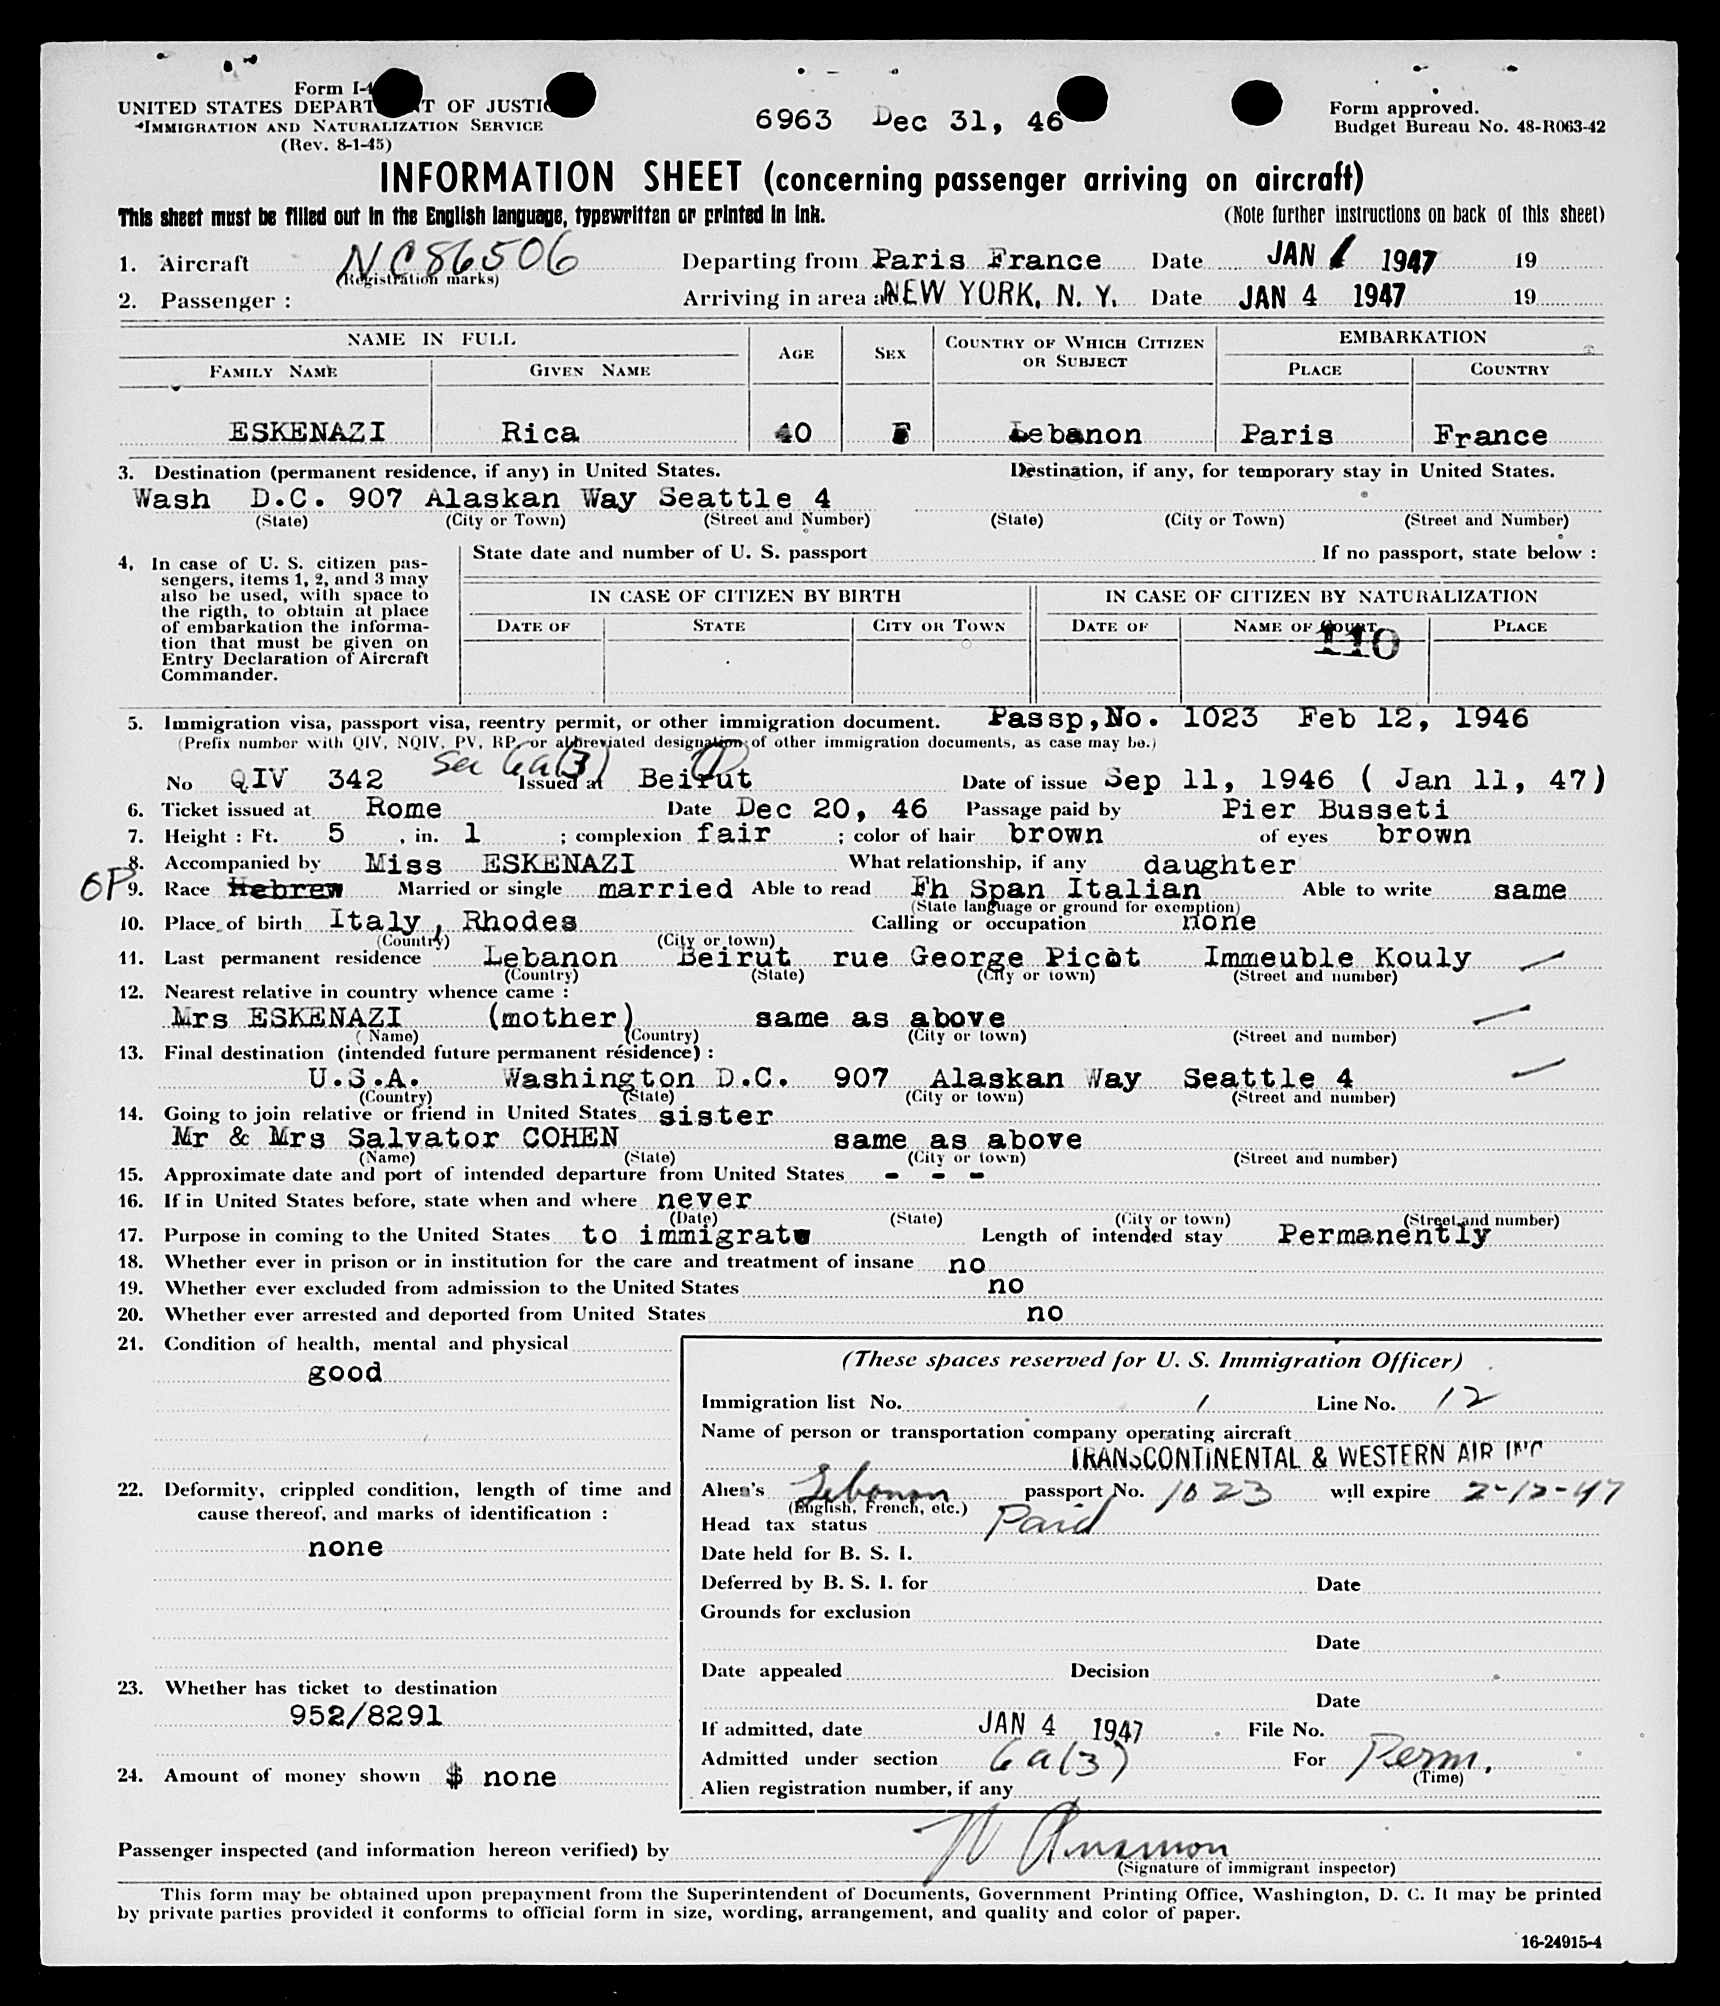 Form I-4
UNITED STATES DEPART T OF JUSTIC
IMMIGRATION AND NATURALIZATION SERVICE
(Rev. 8-1-45)
6963 Dec 31, 46
Form approved.
Budget Bureau No. 48-R063-42
INFORMATION SHEET (concerning passenger arriving on aircraft)
This sheet must be filled out in the English language, typewritten or printed in ink.
(Note further instructions on back of this sheet)
1. Aircraft NC86506 Departing from Paris France Date JAN 1 1947 19
(Registration marks)
2. Passenger : Arriving in area a NEW YORK, N. Y. Date JAN 4 1947 19
NAME IN FULL AGE SEX COUNTRY OF WHICH CITIZEN OR SUBJECT EMBARKATION
FAMILY NAME GIVEN NAME PLACE COUNTRY
ESKENAZI Rica 40 F Lebanon Paris France
3. Destination (permanent residence, if any) in United States. Destination, if any, for temporary stay in United States.
Wash D.C. 907 Alaskan Way Seattle 4
(State) (City or Town) (Street and Number) (State) (City or Town) (Street and Number)
4. In case of U. S. citizen pas-
sengers, items 1, 2, and 3 may
also be used, with space to
the rigth, to obtain at place
of embarkation the informa-
tion that must be given on
Entry Declaration of Aircraft
Commander.
State date and number of U. S. passport If no passport, state below :
IN CASE OF CITIZEN BY BIRTH IN CASE OF CITIZEN BY NATURALIZATION
DATE OF STATE CITY OR TOWN DATE OF NAME OF COURT PLACE
110
5. Immigration visa, passport visa, reentry permit, or other immigration document. Passp,No. 1023 Feb 12, 1946
(Prefix number with QIV, NQIV, PV, RP, or abbreviated designation of other immigration documents, as case may be.)
No QIV 342 Sec 6a(3) Issued at Beirut Date of issue Sep 11, 1946 ( Jan 11, 47)
6. Ticket issued at Rome Date Dec 20, 46 Passage paid by Pier Busseti
7. Height : Ft. 5 , in. 1 ; complexion fair ; color of hair brown of eyes brown
8. Accompanied by Miss ESKENAZI What relationship, if any daughter
OP 9. Race Hebrew Married or single married Able to read Fh Span Italian Able to write same
(State language or ground for exemption)
10. Place of birth Italy, Rhodes Calling or occupation none
(Country) (City or town)
11. Last permanent residence Lebanon Beirut rue George Picot Immeuble Kouly
(Country) (State) (City or town) (Street and number)
12. Nearest relative in country whence came :
Mrs ESKENAZI (mother) same as above
(Name) (Country) (City or town) (Street and number)
13. Final destination (intended future permanent résidence) :
U.S.A. Washington D.C. 907 Alaskan Way Seattle 4
(Country) (State) (City or town) (Street and number)
14. Going to join relative or friend in United States sister
Mr & Mrs Salvator COHEN same as above
(Name) (State) (City or town) (Street and number)
15. Approximate date and port of intended departure from United States - - -
16. If in United States before, state when and where never
(Date) (State) (City or town) (Street and number)
17. Purpose in coming to the United States to immigrate Length of intended stay Permanently
18. Whether ever in prison or in institution for the care and treatment of insane no
19. Whether ever excluded from admission to the United States no
20. Whether ever arrested and deported from United States no
21. Condition of health, mental and physical
good
22. Deformity, crippled condition, length of time and
cause thereof, and marks of identification :
none
23. Whether has ticket to destination
952/8291
24. Amount of money shown $ none
(These spaces reserved for U. S. Immigration Officer)
Immigration list No. 1 Line No. 12
Name of person or transportation company operating aircraft
TRANSCONTINENTAL & WESTERN AIR INC
Alien's Lebanon passport No. 1023 will expire 2-12-47
(English, French, etc.)
Head tax status Paid
Date held for B. S. I.
Deferred by B. S. I. for Date
Grounds for exclusion
Date
Date appealed Decision
Date
If admitted, date JAN 4 1947 File No.
Admitted under section 6a(3) For Perm.
(Time)
Alien registration number, if any
Passenger inspected (and information hereon verified) by
(Signature of immigrant inspector)
This form may be obtained upon prepayment from the Superintendent of Documents, Government Printing Office, Washington, D. C. It may be printed
by private parties provided it conforms to official form in size, wording, arrangement, and quality and color of paper.
16-24915-4